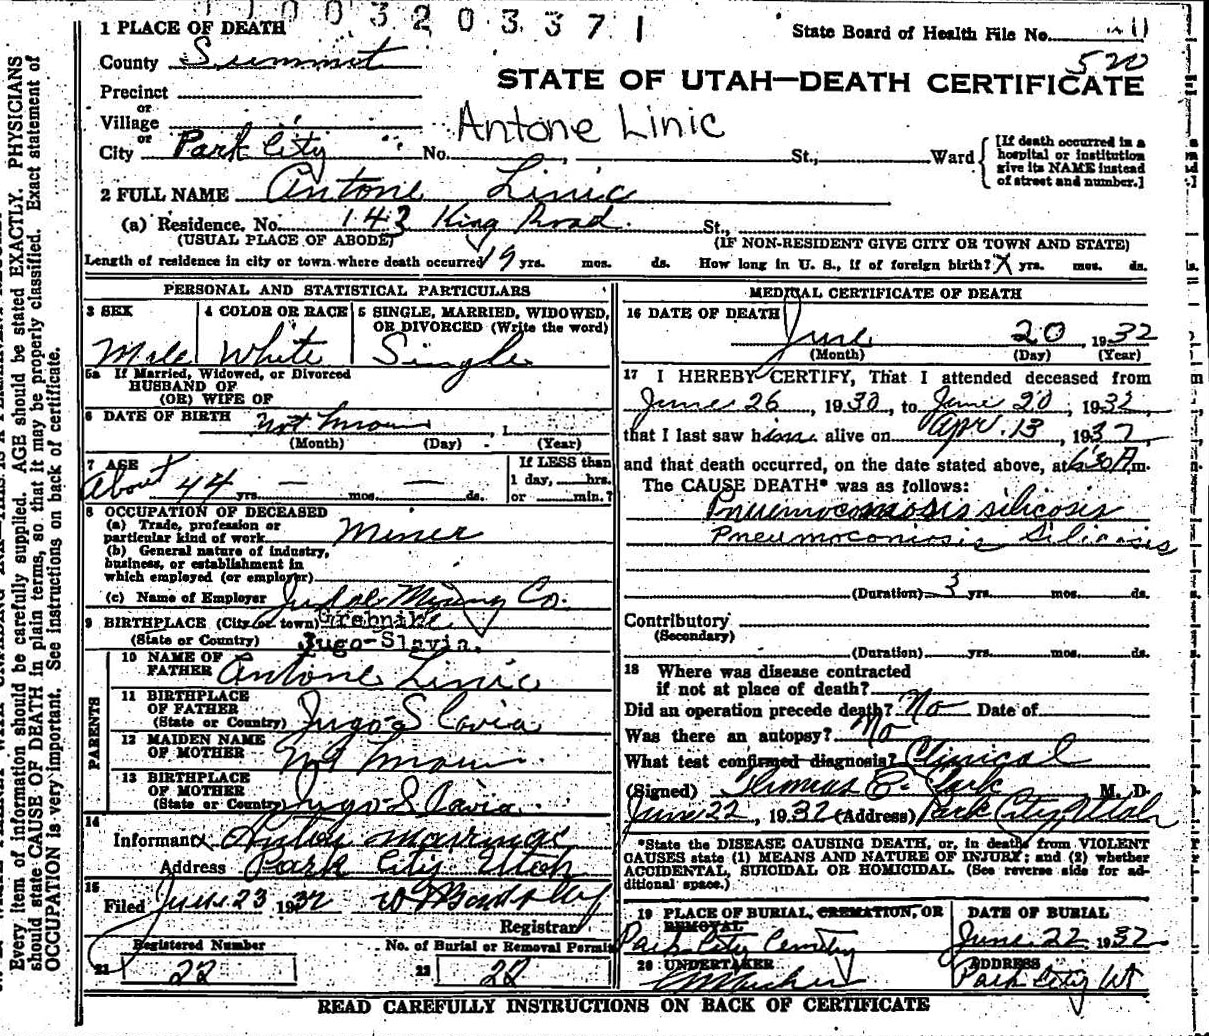 0 0 0 3 2 0 3 3 7 1
1 PLACE OF DEATH
State Board of Health File No.
County Summit
520
STATE OF UTAH—DEATH CERTIFICATE
Precinct
or
Village
Antone Linic
or
City Park City No. , St., Ward
[If death occurred in a hospital or institution give its NAME instead of street and number.]
2 FULL NAME Antone Linic
(a) Residence. No. 143 King Road. St.,
(USUAL PLACE OF ABODE) (IF NON-RESIDENT GIVE CITY OR TOWN AND STATE)
Length of residence in city or town where death occurred 19 yrs. mos. ds. How long in U. S., if of foreign birth? X yrs. mos. ds.
PERSONAL AND STATISTICAL PARTICULARS
3 SEX
Male
4 COLOR OR RACE
White
5 SINGLE, MARRIED, WIDOWED,
OR DIVORCED (Write the word)
Single
5a If Married, Widowed, or Divorced
HUSBAND OF
(OR) WIFE OF
6 DATE OF BIRTH Not known , 1
(Month) (Day) (Year)
7 AGE
About 44 yrs. — mos. — ds.
If LESS than
1 day, hrs.
or min.?
8 OCCUPATION OF DECEASED
(a) Trade, profession or
particular kind of work Miner
(b) General nature of industry,
business, or establishment in
which employed (or employer)
(c) Name of Employer Judge Mining Co.
9 BIRTHPLACE (City or town) Grebnike
(State or Country) Jugo-Slavia.
PARENTS
10 NAME OF
FATHER Antone Linic
11 BIRTHPLACE
OF FATHER
(State or Country) Jugo-Slavia
12 MAIDEN NAME
OF MOTHER Not known
13 BIRTHPLACE
OF MOTHER
(State or Country) Jugo Slavia
14
Informant
Address Park City Utah
15
Filed June 23 1932
Registrar
Registered Number
21 22
No. of Burial or Removal Permit
22 22
MEDICAL CERTIFICATE OF DEATH
16 DATE OF DEATH
June 20 , 1932
(Month) (Day) (Year)
17 I HEREBY CERTIFY, That I attended deceased from
June 26 , 1930, to June 20 , 1932
that I last saw him alive on Apr. 13 , 1932
and that death occurred, on the date stated above, at 6:30 A m.
The CAUSE DEATH* was as follows:
Pneumoconosis silicosis
Pneumoconiosis Silicosis
(Duration) 3 yrs. mos. ds.
Contributory
(Secondary)
(Duration) yrs. mos. ds.
18 Where was disease contracted
if not at place of death?
Did an operation precede death? No Date of
Was there an autopsy? No
What test confirmed diagnosis? Clinical
(Signed) Thomas E. Clark M. D.
June 22 , 1932 (Address) Park City, Utah
*State the DISEASE CAUSING DEATH, or, in deaths from VIOLENT
CAUSES state (1) MEANS AND NATURE OF INJURY; and (2) whether
ACCIDENTAL, SUICIDAL OR HOMICIDAL. (See reverse side for ad-
ditional space.)
19 PLACE OF BURIAL, CREMATION, OR
REMOVAL
Park City Cemetery
DATE OF BURIAL
June 22 1932
20 UNDERTAKER
ADDRESS
Park City Ut
READ CAREFULLY INSTRUCTIONS ON BACK OF CERTIFICATE
Every item of information should be carefully supplied. AGE should be stated EXACTLY. PHYSICIANS
should state CAUSE OF DEATH in plain terms, so that it may be properly classified. Exact statement of
OCCUPATION is very important. See instructions on back of certificate.